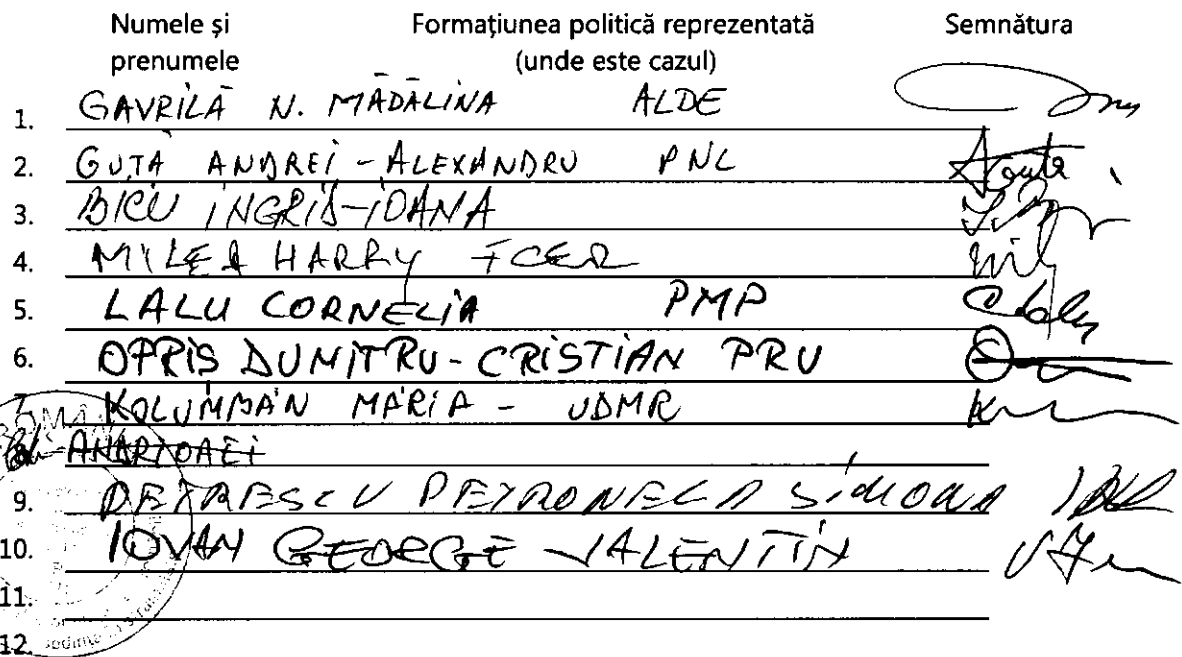 Numele și prenumele Formațiunea politică reprezentată (unde este cazul) Semnătura
1. GAVRILĂ N. MĂDĂLINA ALDE
2. GUȚĂ ANDREI-ALEXANDRU PNL
3. BICU INGRIS-IOANA
4. MILEA HARRY FCER
5. LALU CORNELIA PMP
6. OPRIS DUMITRU-CRISTIAN PRU
7. KOLUMBÁN MÁRIA - UDMR
9. PETRESCU PETRONELA SIMONA
10. IOVAN GEORGE VALENTIN
11.
12.